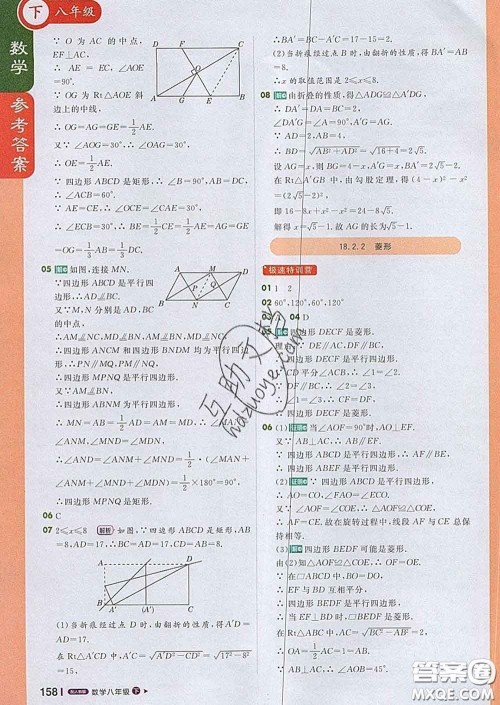 下 八年级
数学
参考答案
∵ O 为 AC 的中点,
EF⊥AC,
∴ AE = EC, ∠AOE
=90°.
∵ OG 为 Rt△AOE 斜
边上的中线,
∴ OG=AG=GE=1/2 AE.
又∵∠AOG=30°, ∴∠OAG=30°,
∴ OE=1/2 AE.
∵ 四边形 ABCD 是矩形, ∴ ∠B=90°, AB=DC.
∵ ∠OAG=30°, ∴ ∠ACB=60°.
∵ AE=CE, ∴ ∠OCE=∠OAG=30°,
∴ ∠BCE=30°, ∴ BE=1/2 CE=1/2 AE=AG=GE
=OG=1/3 AB=1/3 DC.
05 如图, 连接 MN.
∵四边形 ABCD 是平行四
边形, ∴AD⫽BC.
又∵M、N 分别是 AD、BC
的中点,
∴ AM⫽NC, MD⫽BN, AM⫽BN, MD⫽NC,
∴ 四边形 ANCM 和四边形 BNDM 均为平行四
边形, ∴ PN∥MQ, PM∥NQ.
∴ 四边形 MPNQ 是平行四边形.
又∵AM⫽BN,
∴ 四边形 ABNM 为平行四边形.
∴ MN = AB = AM = MD, ∴ ∠MAN =
∠ANM, ∠MND=∠MDN.
∴ ∠ANM + ∠MND = 1/2 · (∠MAN +
∠AND + ∠ANM + ∠MND) = 1/2 ×180° = 90°.
∴ 四边形 MPNQ 是矩形.
06 C
07 2≤x≤8 解析 如图, ∵ 四边形 ABCD 是矩形, AB
=8, AD=17, ∴BC=AD=17, CD=AB=8.
(1) 当折痕经过点 D 时, 由翻折的性质, 得 A′D=
AD=17.
在 Rt△A′CD 中, A′C=√A′D²−CD²=√17²−8²
=15.
158 数学八年级 下
∴ BA′=BC−A′C=17−15=2.
(2) 当折痕经过点 B 时, 由翻折的性质, 得 BA′=
AB=8.
∴ x 的取值范围是 2≤x≤8.
08 由折叠的性质, 得△ADG≌△A′DG,
∴ DA′=DA=BC=2,
∴ ∠GA′D=∠A=90°, A′G=AG.
∵ BD=√AB²+AD²=√16+4=2√5.
设 AG=x, 则 A′G=x, BA′=2√5−2.
在 Rt△A′GB 中, 由勾股定理, 得 (4−x)²−x²
=(2√5−2)²,
即 16−8x+x²−x²=24−8√5.
解得 x=√5−1. 故 AG 的长为√5−1.
18.2.2 菱形
极速特训营
01 1 2
02 60°,120°,60°,120°
04 D
四边形 DECF 是菱形.
理由: ∵ DE∥AC, DF∥BC,
∴ 四边形 DECF 是平行四边形.
∴ 四边形 DECF 是菱形.
06 (1) 证明 当∠AOF=90°时, AB∥EF.
又∵ AB⊥AC, ∴ AF∥BE.
∴ 四边形 ABEF 是平行四边形.
(2) 证明 ∵四边形 ABCD 是平行四边形,
∴ AO=CO, ∴ ∠FAO=∠ECO.
又∵ ∠AOF=∠COE, ∴ △AOF≌△COE,
∴ AF=CE. 故在旋转过程中, 线段 AF 与 CE 总保
持相等.
(3) 四边形 BEDF 可能是菱形.
由(2)知△AOF≌△COE, ∴ OE=OF.
∵ 在□ABCD 中, OB=OD,
∴ EF 与 BD 互相平分,
∴ 四边形 BEDF 是平行四边形.
当 EF⊥BD 时, □BEDF 是菱形.
∵ AB⊥AC, ∴ ∠BAC=90°.
在 Rt△ABC 中, AC=√BC²−AB²=√
∴ AO=1. 又 AB=1, ∴ AB=AO.
又∵ ∠BAC=90°, ∴ ∠AOB=
互助文
hdzuoye.com
答案圈
MXQE.COM